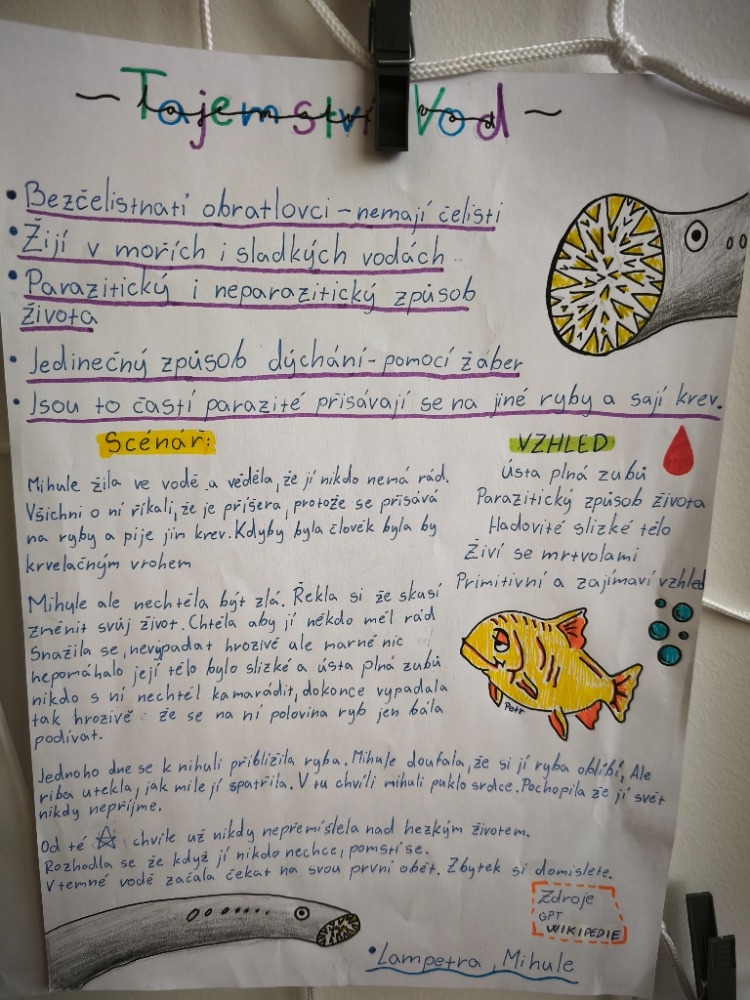 ~ Tajemství Vod ~
• Bezčelistnatí obratlovci – nemají čelisti
• Žijí v mořích i sladkých vodách
• Parazitický i neparazitický způsob
života
• Jedinečný způsob dýchání - pomocí žaber
• Jsou to častí parazité přisávají se na jiné ryby a sají krev.
Scénář:
Mihule žila ve vodě a věděla, že jí nikdo nemá rád.
Všichni o ní říkali, že je příšera, protože se přisává
na ryby a pije jim krev. Kdyby byla člověk byla by
krvelačným vrohem
Mihule ale nechtěla být zlá. Řekla si že skusí
změnit svůj život. Chtěla aby jí někdo měl rád
Snažila se, nevypadat hrozivě ale marně nic
nepomáhalo její tělo bylo slizké a ústa plná zubů
nikdo s ní nechtěl kamarádit, dokonce vypadala
tak hrozivě že se na ní polovina ryb jen bála
podívat.
Jednoho dne se k mihuli přiblížila ryba. Mihule doufala, že si jí ryba oblíbí, Ale
riba utekla, jak mile jí spatřila. V tu chvíli mihuli puklo srdce. Pochopila že jí svět
nikdy nepřijme.
Od té chvíle už nikdy nepřemíšlela nad hezkým životem.
Rozhodla se že když jí nikdo nechce, pomstí se.
V temné vodě začala čekat na svou první oběť. Zbytek si domislete.
VZHLED
Ústa plná zubů
Parazitický způsob života
Hadovité slizké tělo
Živí se mrtvolami
Primitivní a zajímaví vzhled
Petr
Zdroje
GPT
WIKIPEDIE
• Lampetra, Mihule